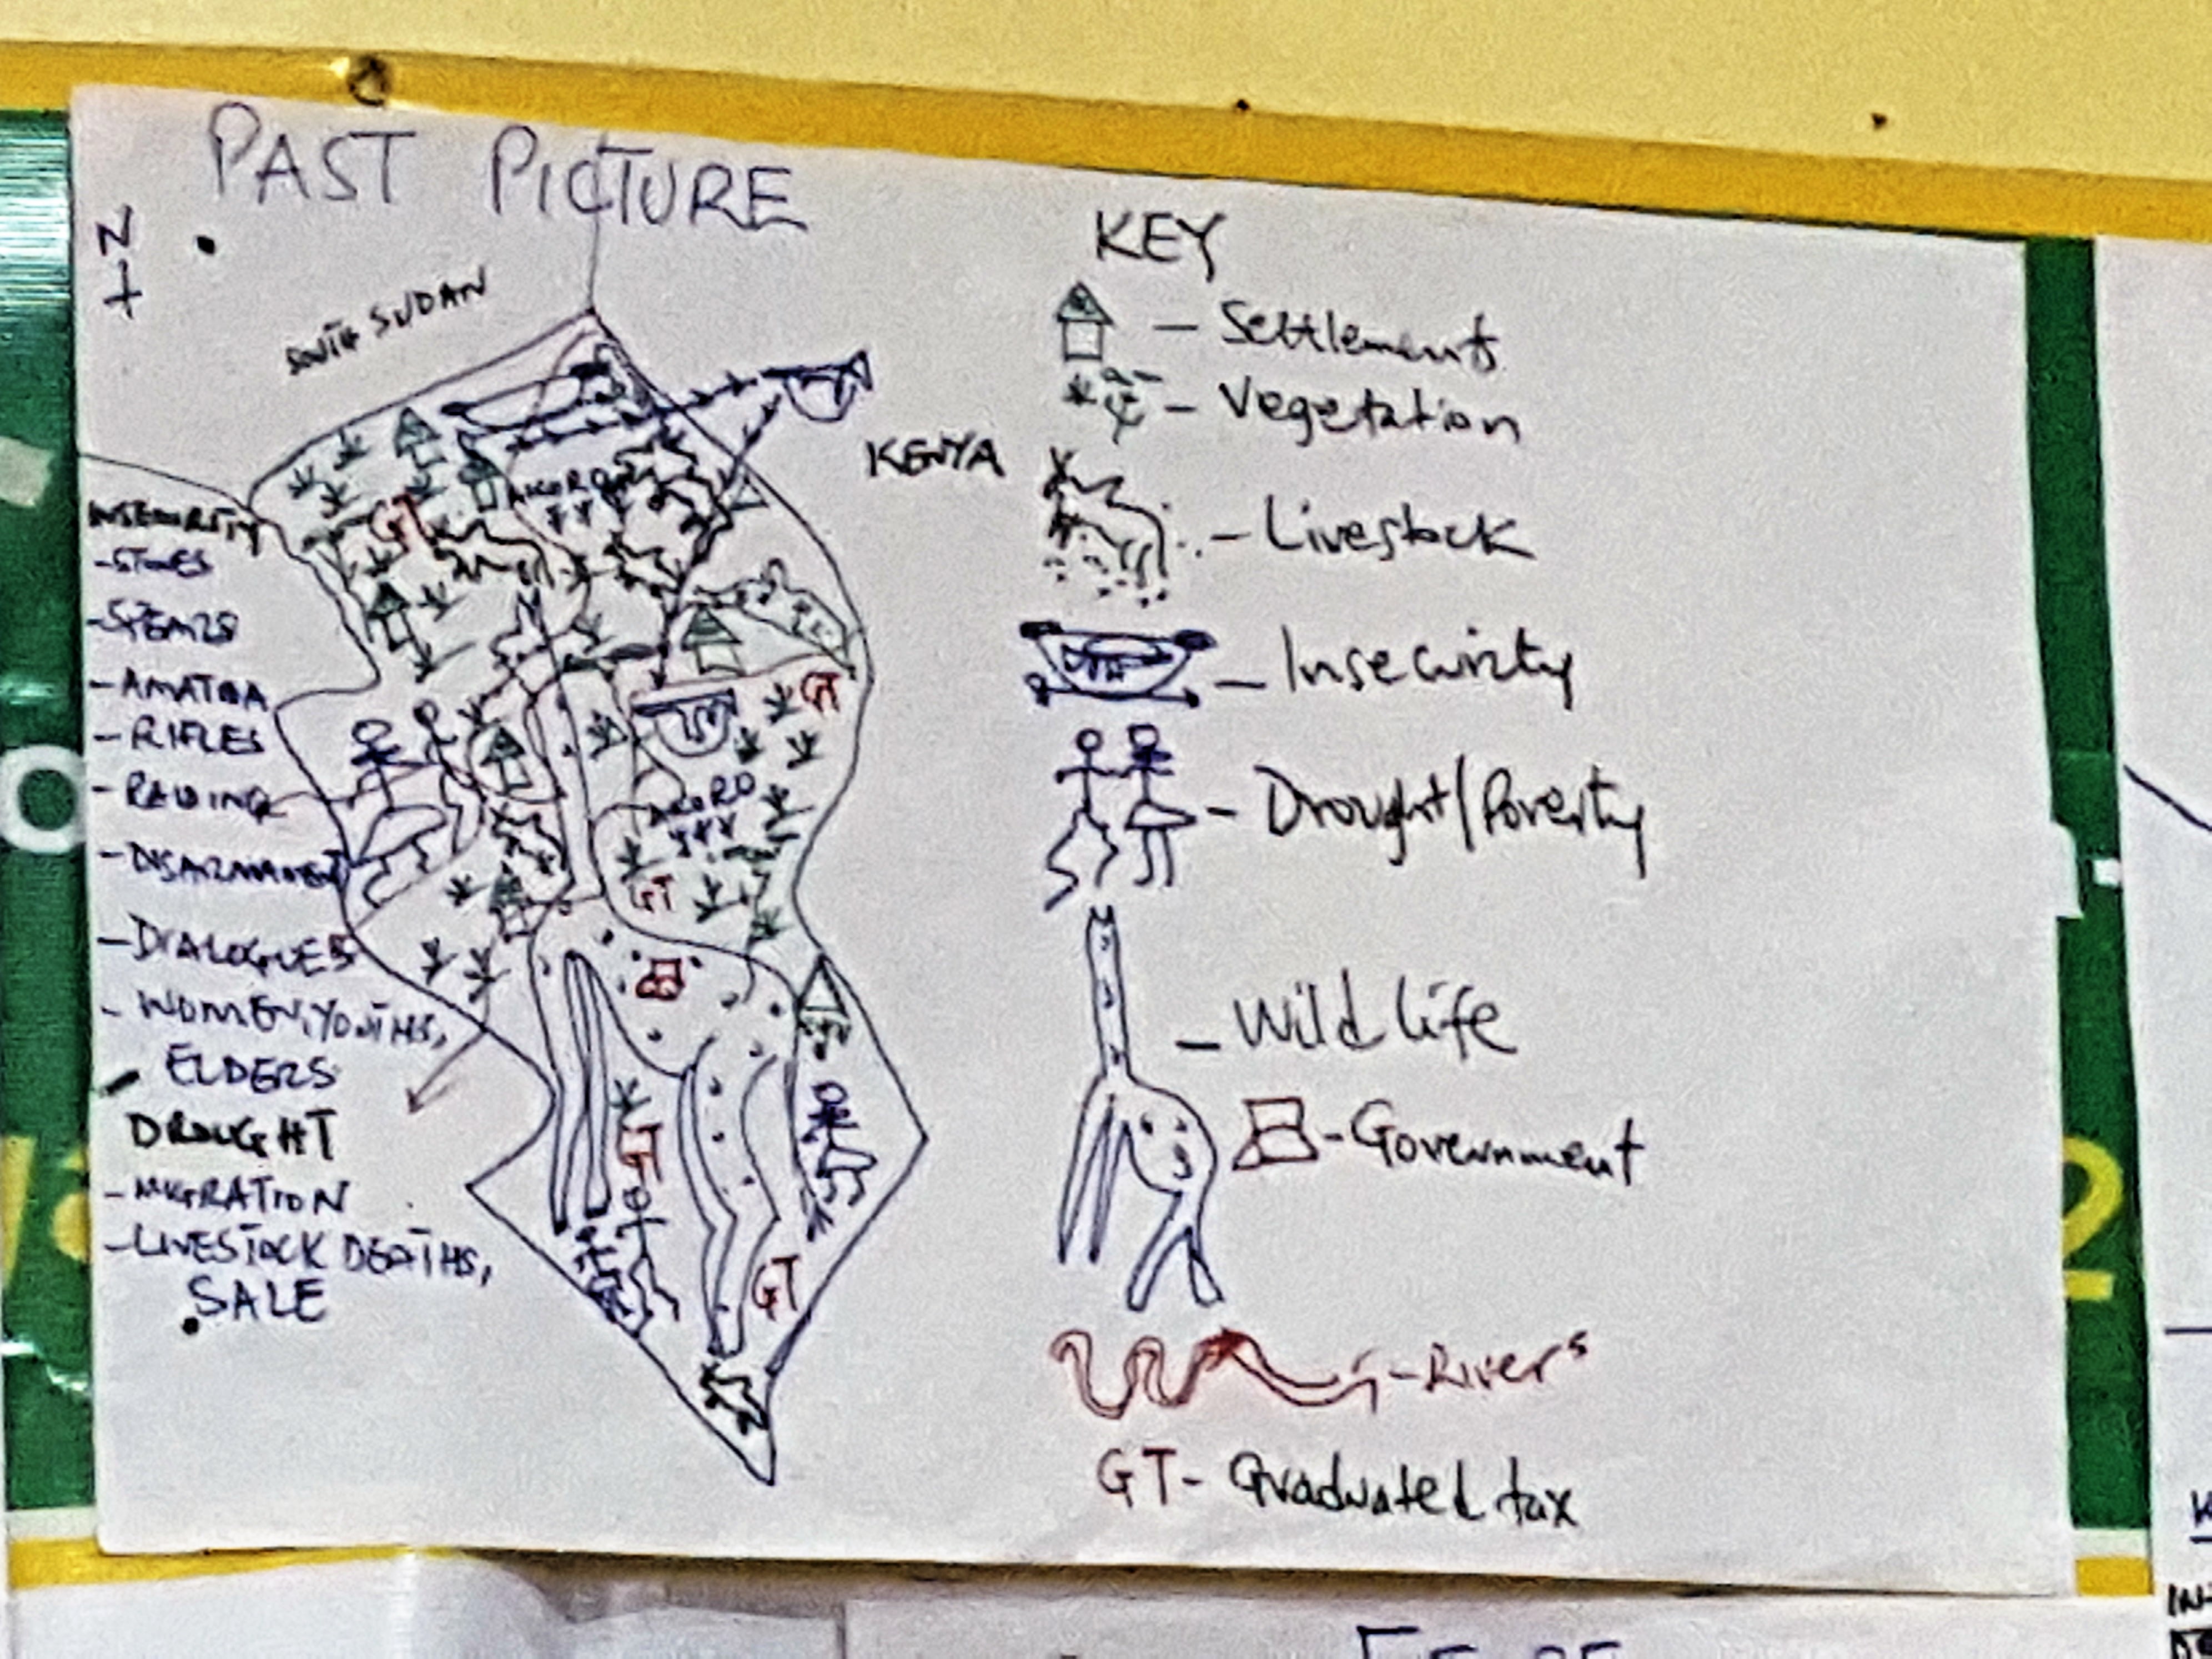 PAST PICTURE
N
SOUTH SUDAN
KENYA
INSECURITY
- STONES
- SPEARS
- AMATIDA
- RIFLES
- RAIDING
- DISARMAMENT
- DIALOGUES
- WOMEN, YOUTHS,
ELDERS
DROUGHT
- MIGRATION
- LIVESTOCK DEATHS,
SALE
GT
GT
GT
GT
GT
KEY
- Settlements
- Vegetation
- Livestock
- Insecurity
- Drought/Poverty
- Wild life
- Government
- Rivers
GT - Graduated tax